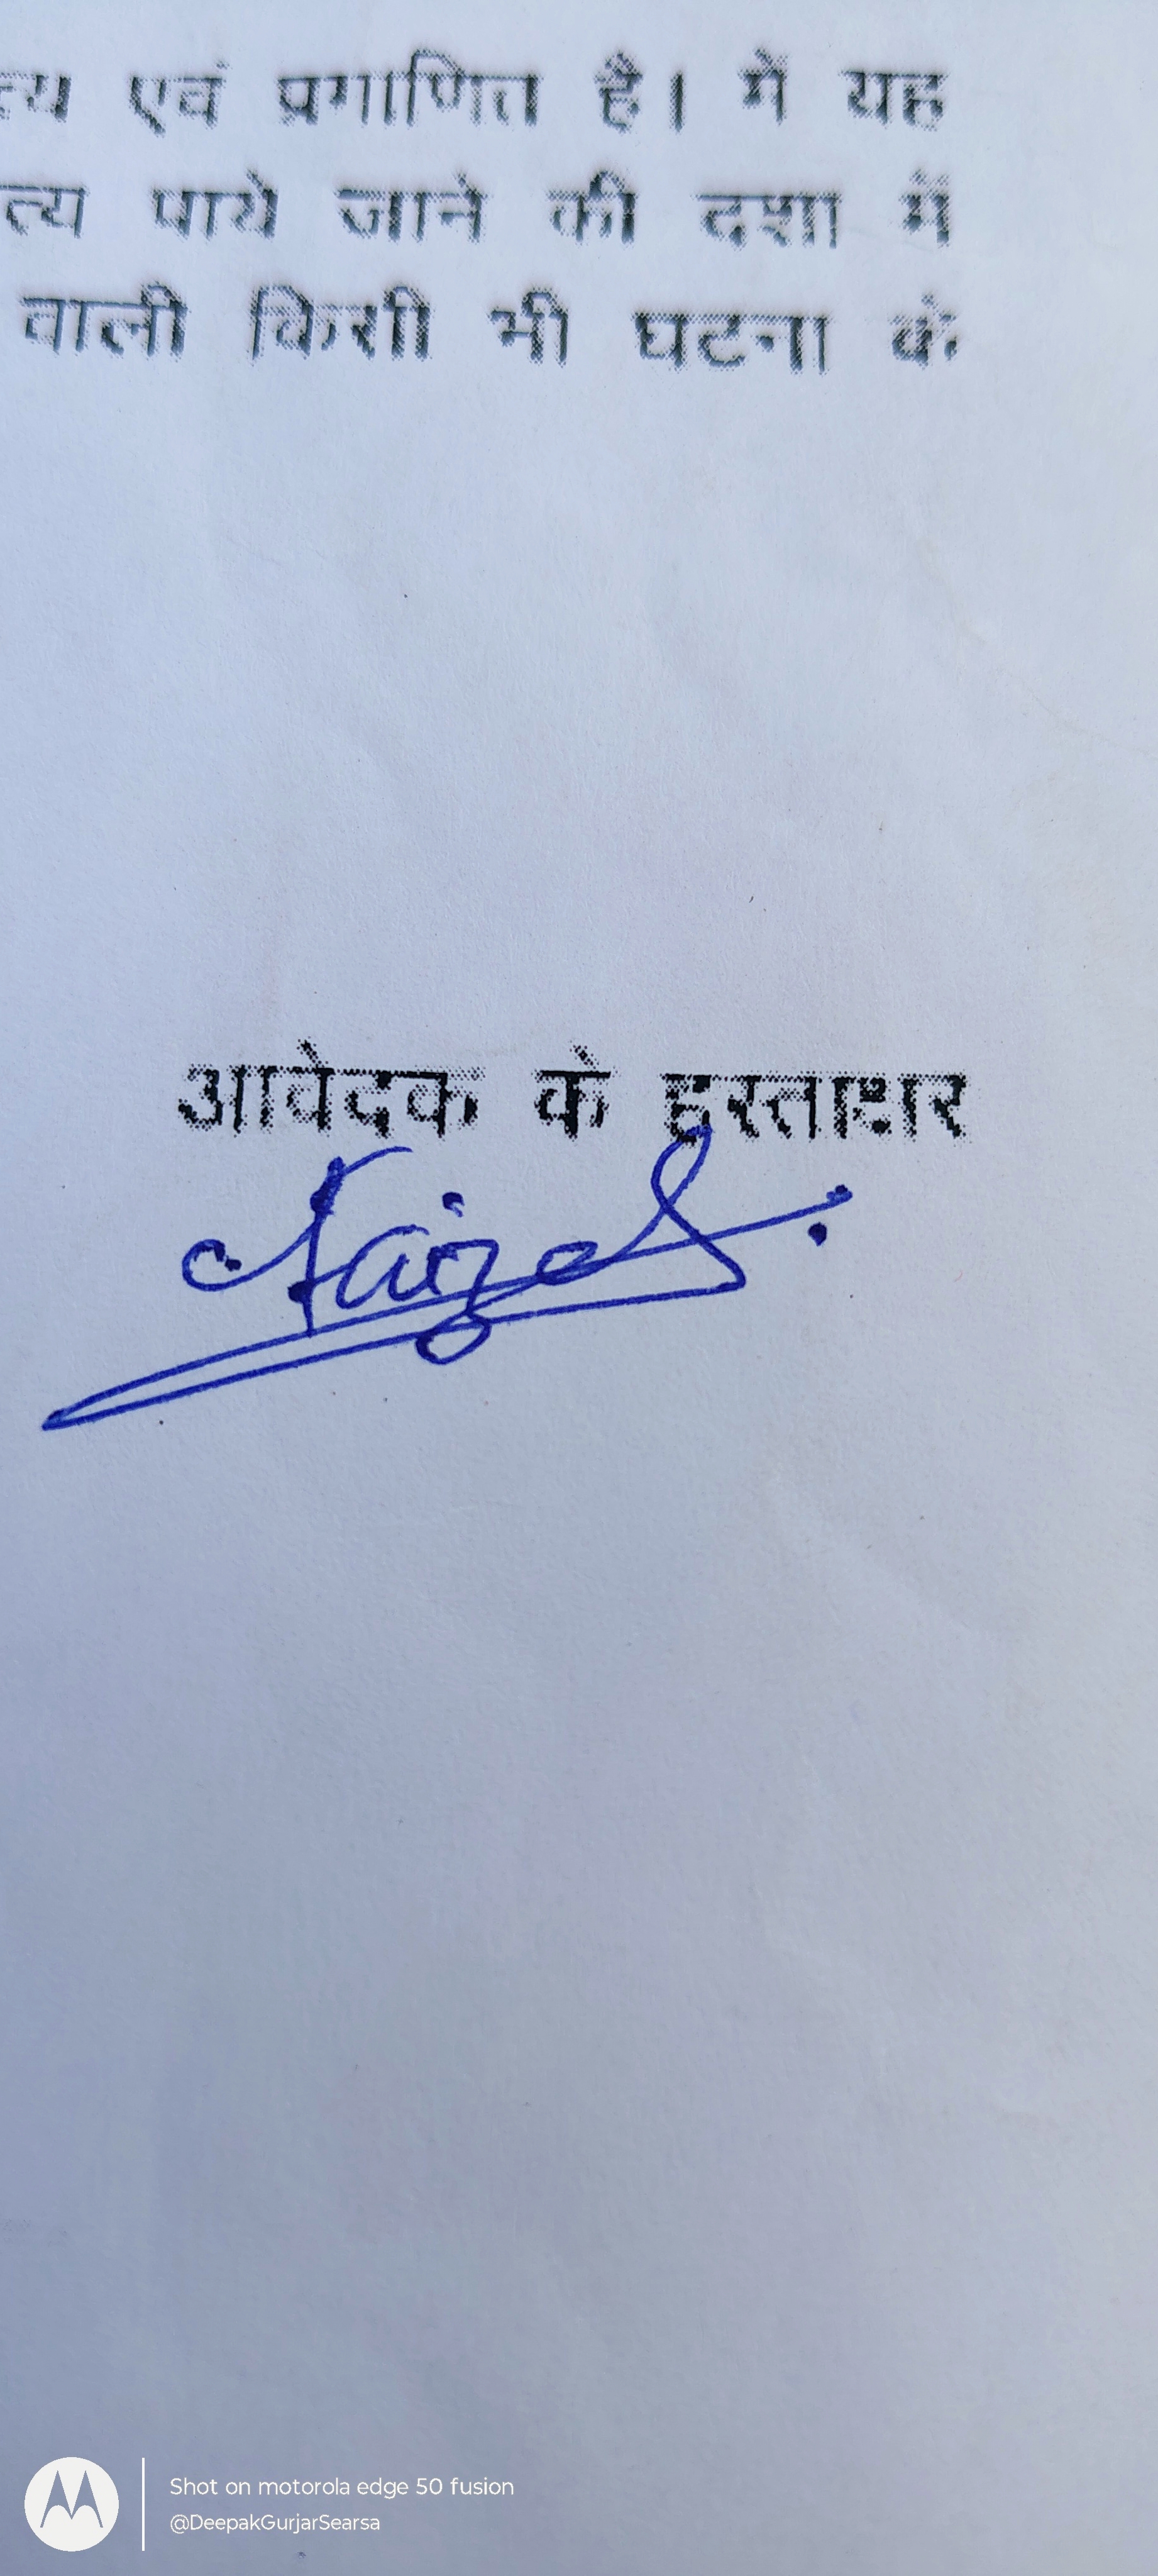 त्य एवं प्रमाणित है। मैं यह
त्य पाये जाने की दशा में
वाली किसी भी घटना के
आवेदक के हस्ताक्षर
Shot on motorola edge 50 fusion
@DeepakGurjarSearsa